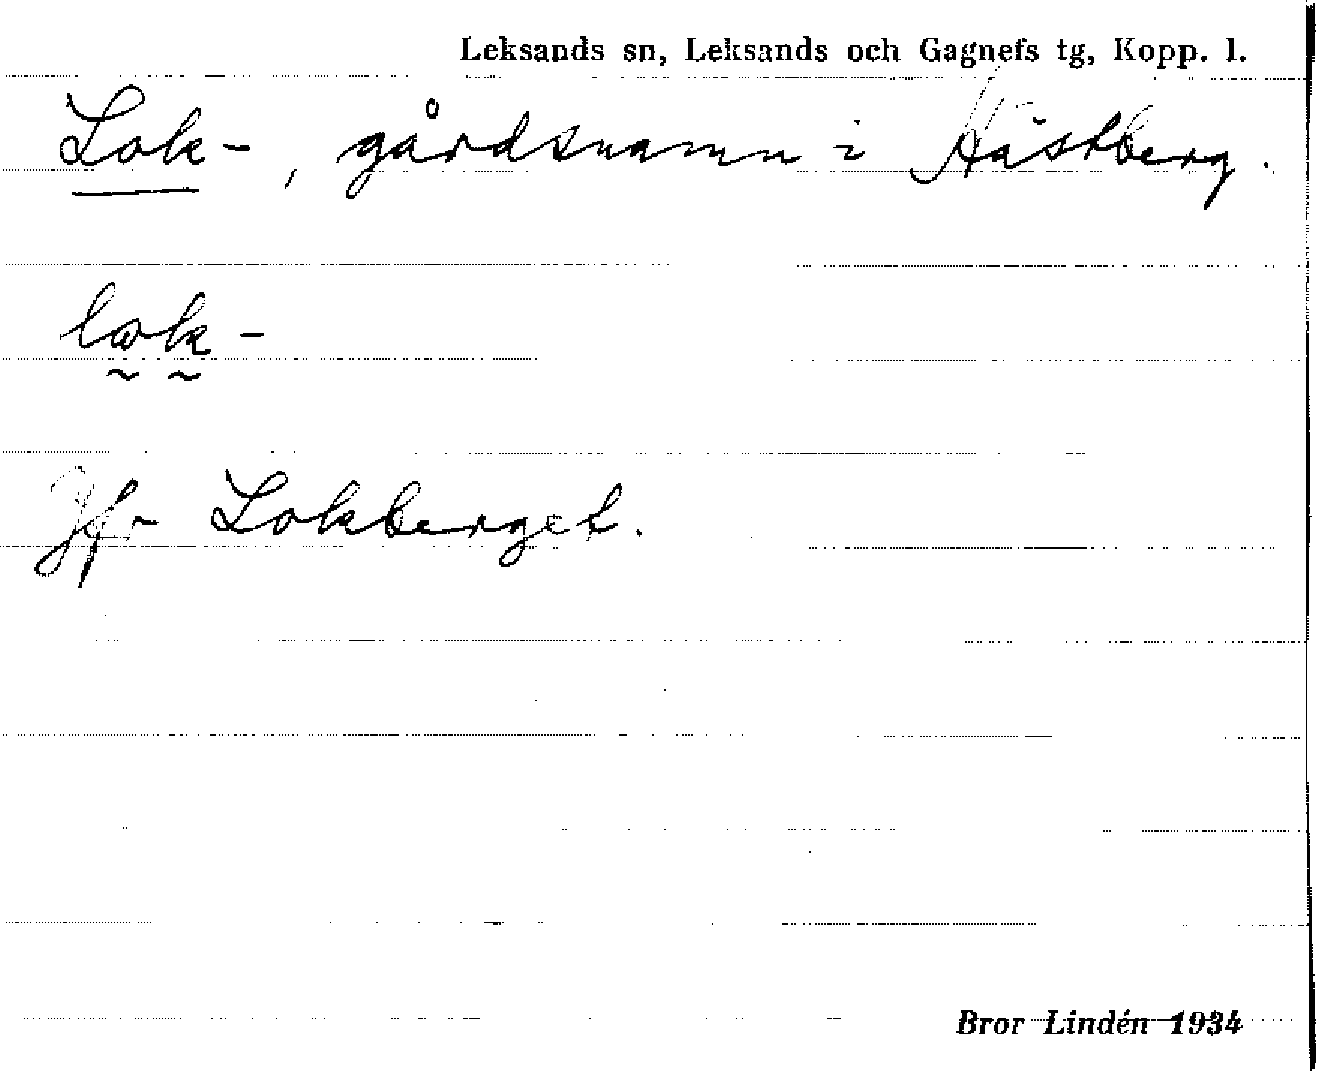 Leksands sn, Leksands och Gagnefs tg, Kopp. l.
Lok-, gårdsnamn i Hästberg.
Jfr Lokberget.
Bror Lindén 1934